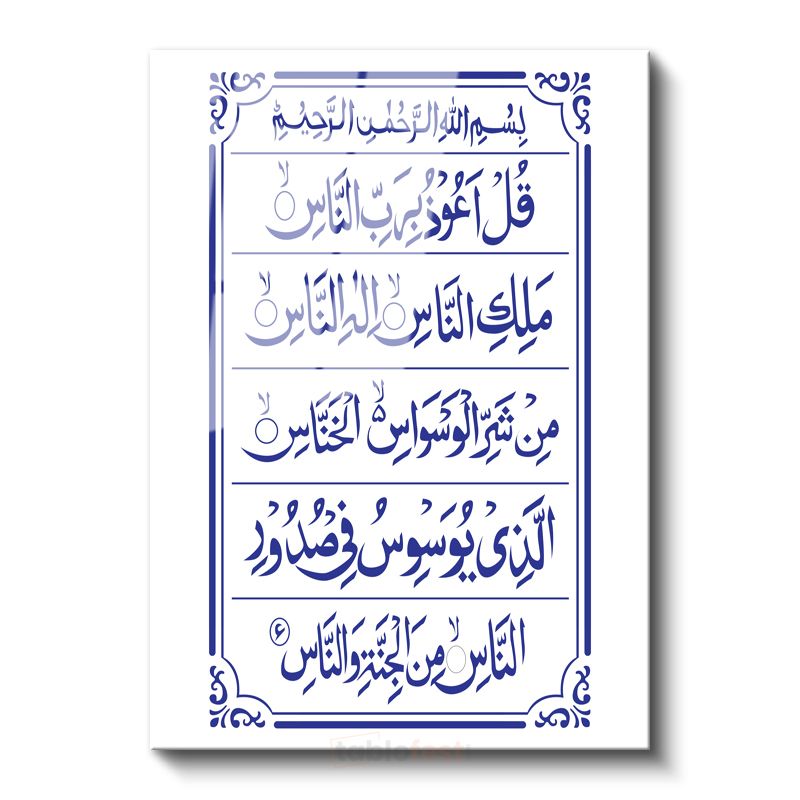 بِسْمِ اللهِ الرَّحْمٰنِ الرَّحِيْمِ
قُلْ اَعُوْذُ بِرَبِّ النَّاسِ ۙ
مَلِكِ النَّاسِ ۙ اِلٰهِ النَّاسِ ۙ
مِنْ شَرِّ الْوَسْوَاسِ ۙ۬ الْخَنَّاسِ ۙ
الَّذِىْ يُوَسْوِسُ فِىْ صُدُوْرِ
النَّاسِ ۙ مِنَ الْجِنَّةِ وَالنَّاسِ ع
tablofest